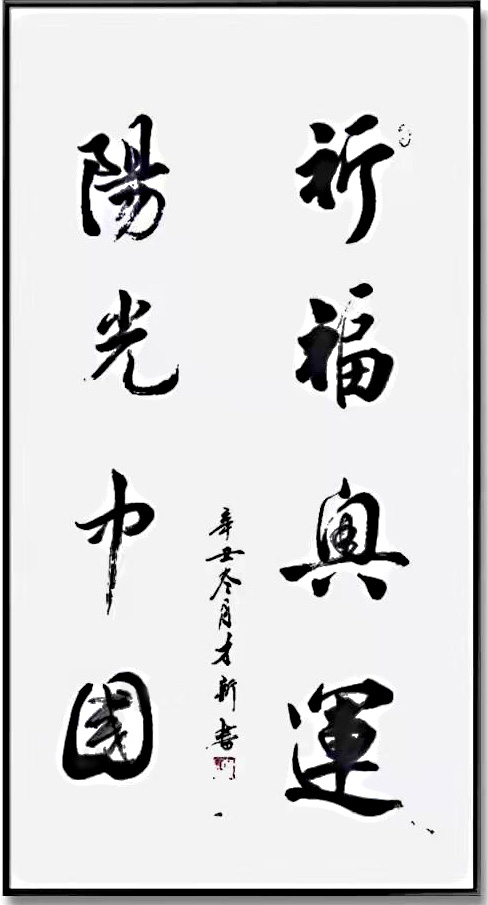 祈福奧運
陽光中國
辛丑冬月才新書